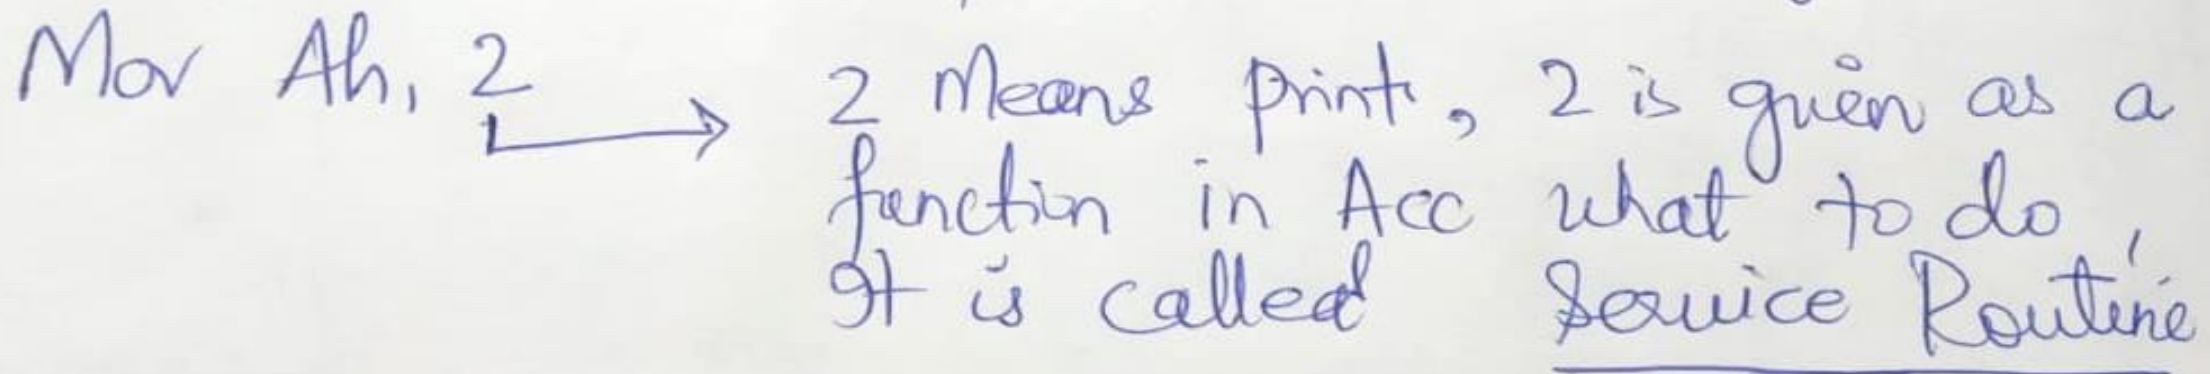 Mov Ah, 2 → 2 Means print, 2 is given as a
function in Acc what to do,
It is called Service Routine